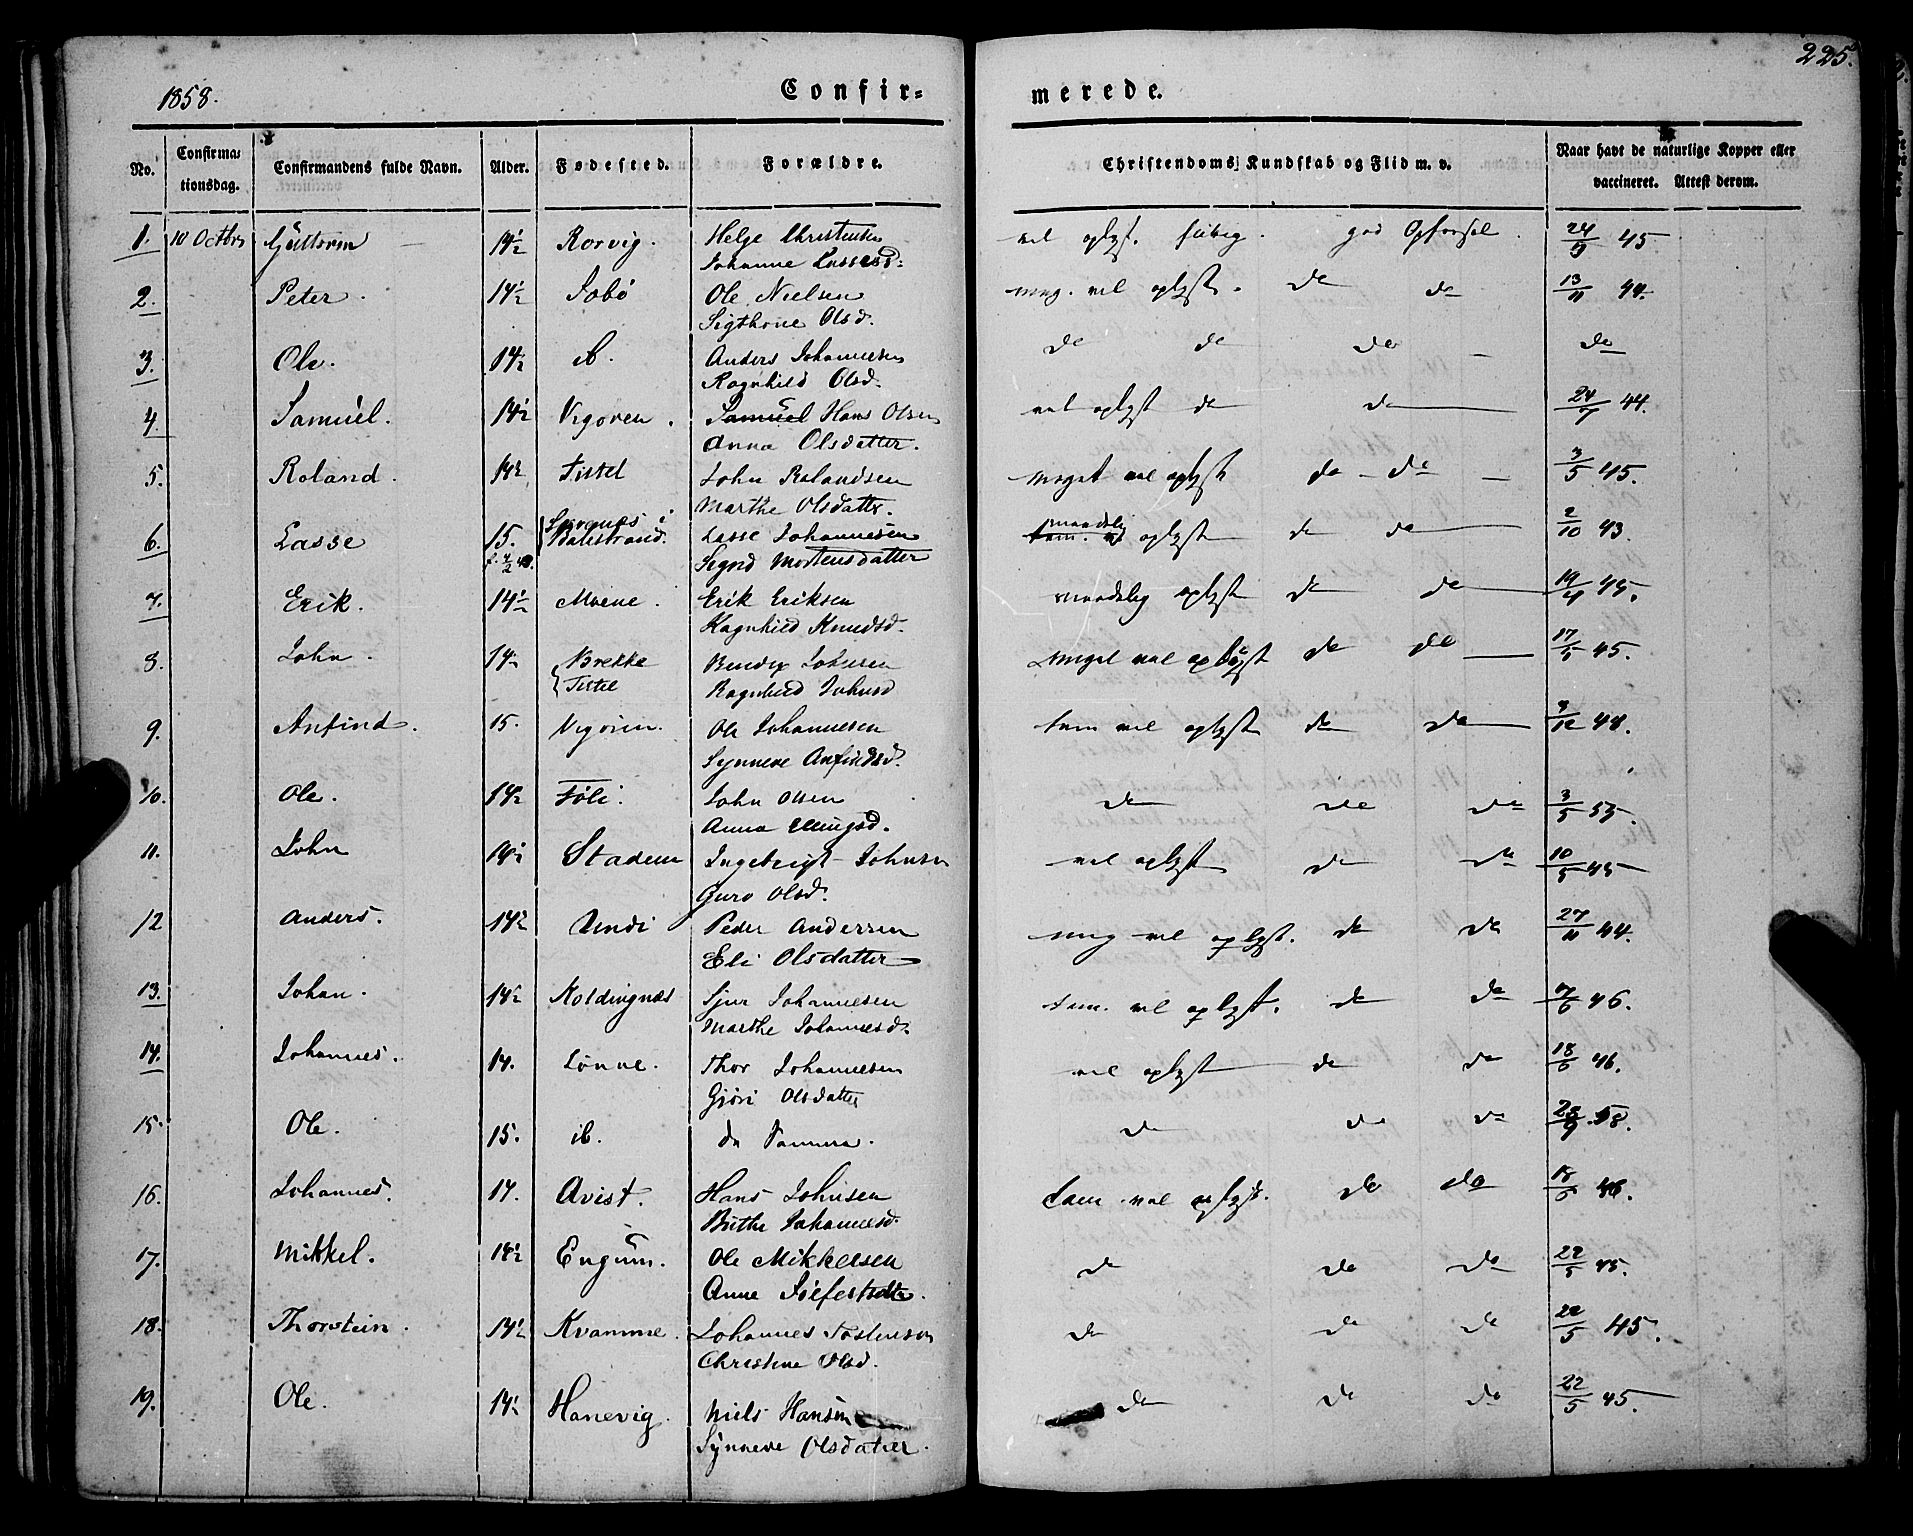 1858. Confir- merede. 225.
No. Confirma- tionsdag. Confirmandens fulde Navn. Alder. Fødested. Forældre. Christendoms Kundskab og Flid m. v. Naar havt de naturlige Kopper eller vaccineret. Attest derom.
1. 10 Octbr Guttorm 14½ Rørvig. Helge Christensen vel oplyst. flittig. god Opførsel. 24/9 45
Johanne Lassesd:
2. Peter. 14½ Søbø Ole Nielsen meg. vel oplyst. do do 13/11 44.
Sigthone Olsd.
3. Ole. 14½ ib. Anders Johannesen do do do do
Ragnhild Olsd.
4. Samuel. 14½ Vigøren. Samuel Hans Olsen vel oplyst do do 24/7 44.
Anna Olsdatter.
5. Roland. 14½ Tistel John Rolandsen meget vel oplyst do do 3/5 45.
Marthe Olsdattr.
6. Lasse 15. Balestrand. Lasse Johannesen maadelig oplyst do do 2/10 43.
Sigrid Mortensdatter
7. Erik. 14½ Moene. Erik Eriksen maadelig oplyst do do 19/4 45.
Ragnhild Knudsd.
8. John. 14½ Brekke Bendix Johnsen meget vel oplyst do do 17/5 45.
Tistel Ragnhild Johnsd
9. Anfind. 15. Vigøren. Ole Johannesen tem vel oplyst do do 44.
Synneve Anfindsd.
10. Ole. 14½ Føli. John Olsen do do do 3/5 53.
Anna Ellingsd.
11. John 14½ Stadem Ingebrigt Johnsen vel oplyst do do 10/5 45
Guro Olsd.
12 Anders. 14½ Undi Peder Andersen meg vel oplyst. do do 27/11 44.
Eli Olsdatter
13. Johan. 14½ Noldingnæs Sjur Johannesen tem. vel oplyst. do do 46.
Marthe Johannesd.
14. Johannes. 14. Lønne. Thor Johannesen vel oplyst do do 18/5 46.
Gjøri Olsdatter
15. Ole. 15. ib. do Samme. do do do 58.
16. Johannes. 14. Avist. Hans Johnsen tem vel oplyst. do do 18/5 46.
Brithe Johannesd.
17. Mikkel. 14½ Engum. Ole Mikkelsen do do do 22/5 45.
Anne
18. Thorstein. 14½ Kvamme. Johannes Tostenson do do do 22/5 45.
Christine Olsd.
19. Ole. 14½ Hanevig. Niels Hansen do do do 22/5 45.
Synneve Olsdatter.